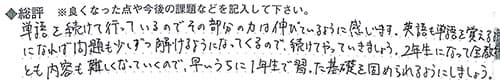 ◆総評 ※良くなった点や今後の課題などを記入して下さい。
単語を続けて行っているのでその部分の力は伸びているように感じます。英語も単語を覚える
になれば問題も少しずつ解けるようになってくるので、続けてやっていきましょう。2年生になって全教
とも内容も難しくなっていくので、早いうちに1年生で習った基礎を固められるようにしましょう。